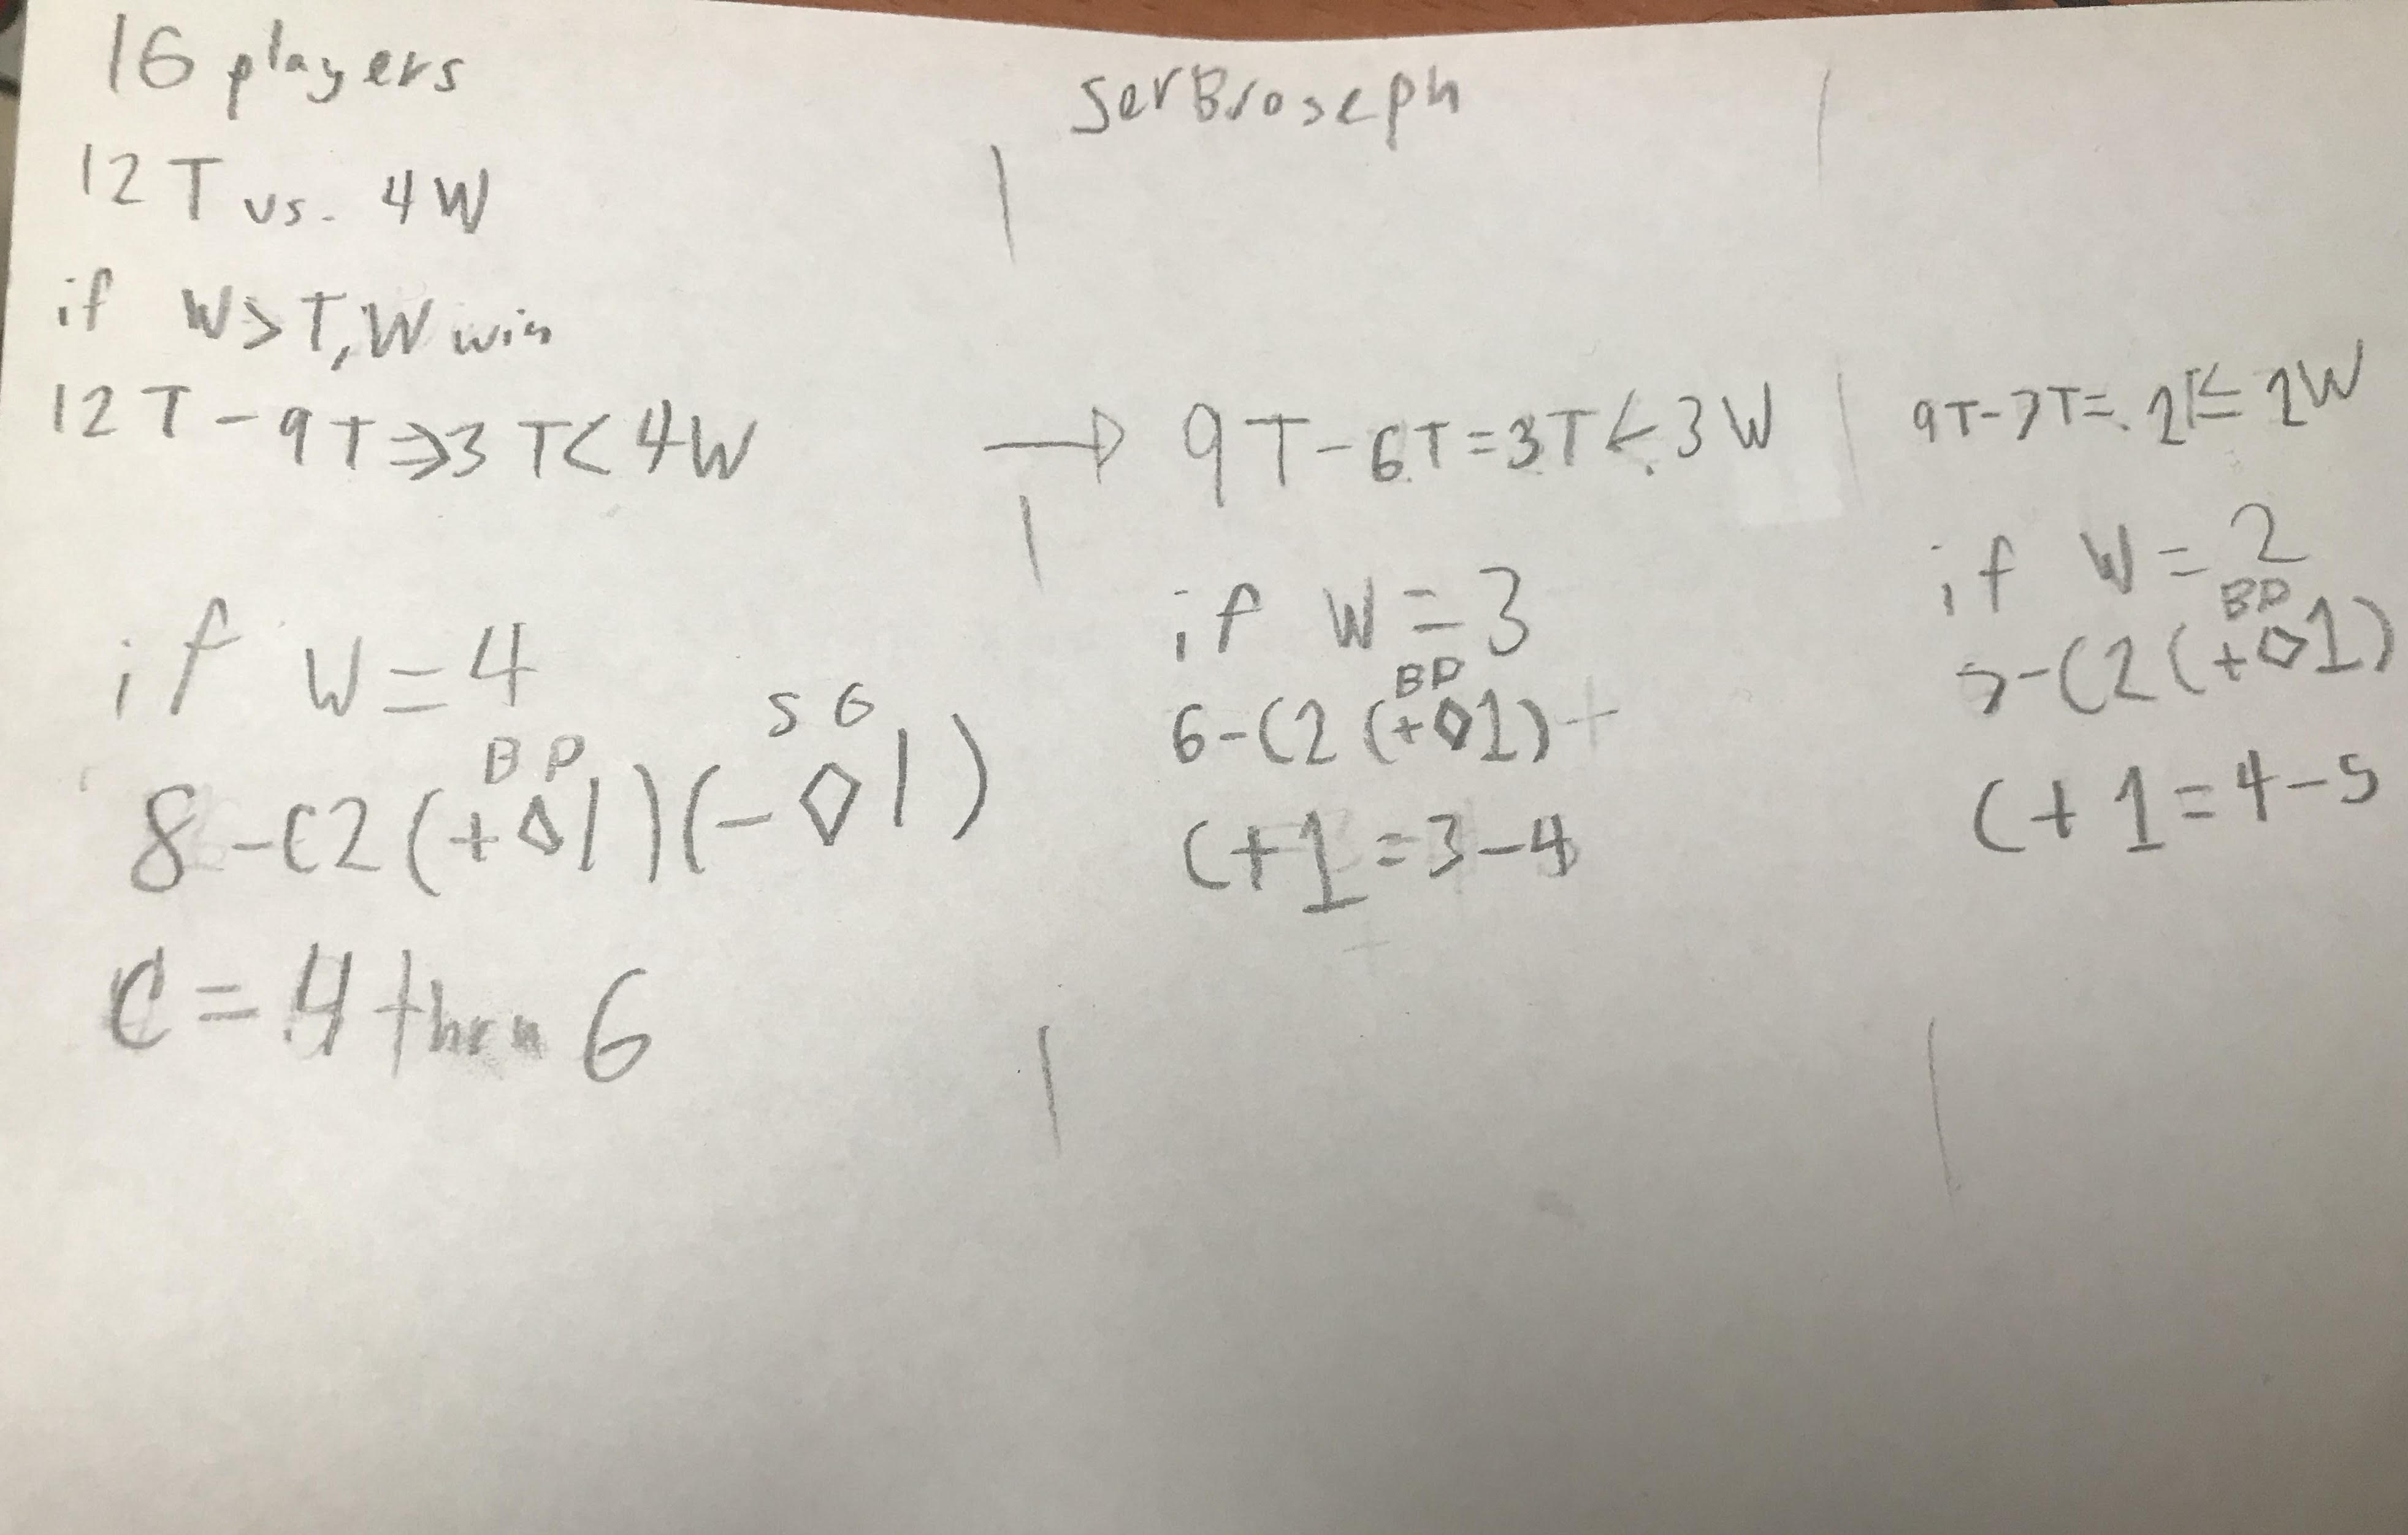 16 players
12 T vs. 4 W
if W>T, W win
12 T - 9 T => 3 T < 4 W
if W = 4
BP SG
8 - (2 (+◊1)(-◊1)
C = 4 thru 6
SerBroseph
→ 9 T - 6 T = 3 T ≤ 3 W
if W = 3
BP
6 - (2 (+◊1)
C + 1 = 3 - 4
9T - 7T = 2T ≤ 2W
if W = 2
BP
7 - (2 (+◊1)
C + 1 = 4 - 5